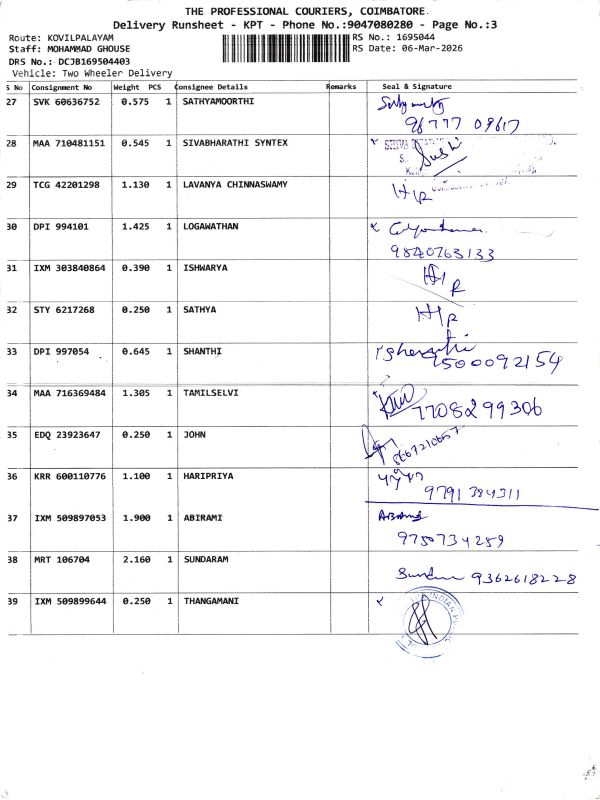 THE PROFESSIONAL COURIERS, COIMBATORE.
Delivery Runsheet - KPT - Phone No.:9047080280 - Page No.:3
Route: KOVILPALAYAM
RS No.: 1695044
Staff: MOHAMMAD GHOUSE
RS Date: 06-Mar-2026
DRS No.: DCJB169504403
Vehicle: Two Wheeler Delivery
S No Consignment No Weight PCS Consignee Details Remarks Seal & Signature
27 SVK 60636752 0.575 1 SATHYAMOORTHI
96777 09617
28 MAA 710481151 0.545 1 SIVABHARATHI SYNTEX
29 TCG 42201298 1.130 1 LAVANYA CHINNASWAMY
30 DPI 994101 1.425 1 LOGAWATHAN
9840763133
31 IXM 303840864 0.390 1 ISHWARYA
32 STY 6217268 0.250 1 SATHYA
33 DPI 997054 0.645 1 SHANTHI
9500092154
34 MAA 716369484 1.305 1 TAMILSELVI 7708299306
35 EDQ 23923647 0.250 1 JOHN 8667210657
36 KRR 600110776 1.100 1 HARIPRIYA
9791384311
37 IXM 509897053 1.900 1 ABIRAMI
9750734259
38 MRT 106704 2.160 1 SUNDARAM
9362618228
39 IXM 509899644 0.250 1 THANGAMANI